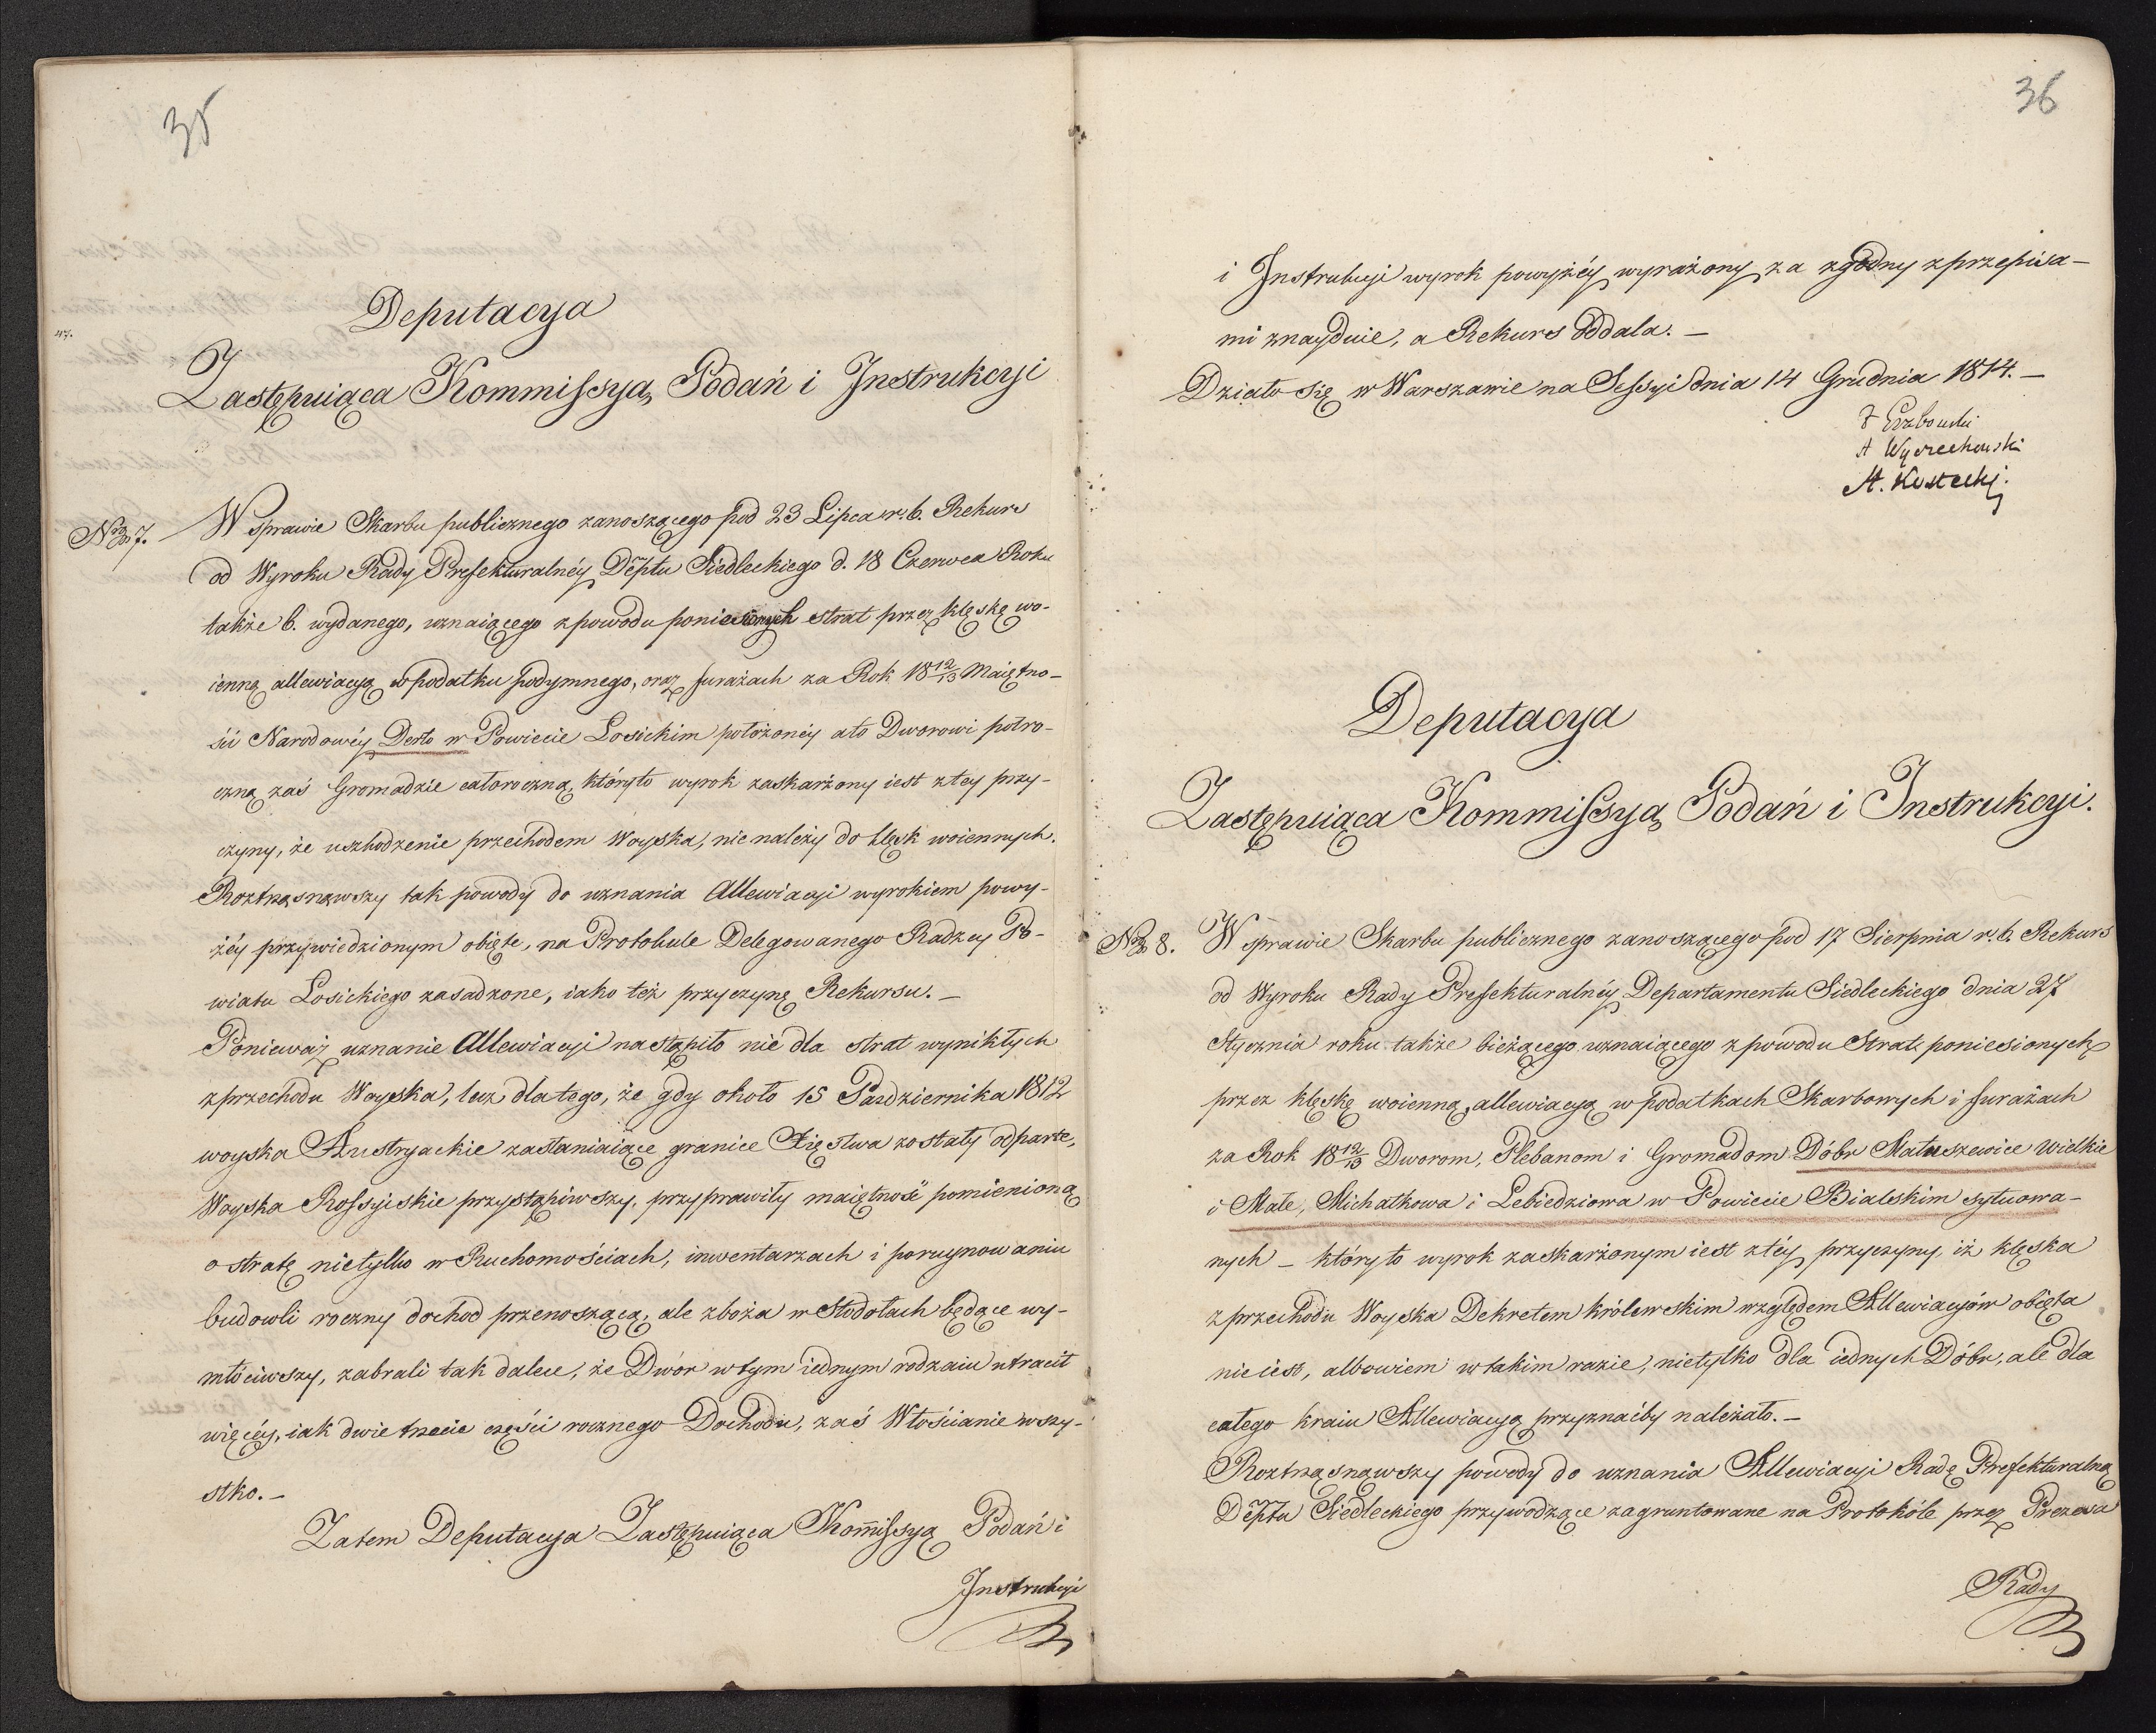 35
Deputacya
47.
Zastępuiąca Kommissyą Podań i Instrukcyi
No 7. W sprawie Skarbu publicznego zanoszącego pod 23 Lipca r. b. Rekurs
od Wyroku Rady Prefekturalnéy Deptu Siedleckiego d. 18 Czerwca Roku
także b. wydanego, uznaiącego z powodu poniesionych strat przez klęskę wo-
ienną allewiacyą w podatku podymnego, oraz furażach za Rok 18 12/13 Maiętno-
ści Narodowéy Derło w Powiecie Łosickim położonéy a to Dworowi połro-
czną zaś Gromadzie całoroczną, któryto wyrok zaskarżony iest z tey przy-
czyny, że uszkodzenie przechodem Woyska, nie należy do klęsk woiennych.
Roztrząsnąwszy tak powody do uznania Allewiacyi wyrokiem powy-
żéy przywiedzionym obięte, na Protokule Delegowanego Radzcy Po-
wiatu Łosickiego zasadzone, iako też przyczynę Rekursu. —
Ponieważ uznanie Allewiacyi nastąpiło nie dla strat wynikłych
z przechodu Woyska, lecz dlatego, że gdy około 15 Pazdziernika 1812
woyska Austryackie zasłaniaiące granice Xięstwa zostały odparte,
Woyska Rossyiskie przystąpiwszy, przyprawiły maiętność pomienioną
o stratę nietylko w Ruchomościach, inwentarzach i porujnowaniu
budowli roczny dochod przenoszącą, ale zboża w Stodołach będące wy-
młóciwszy, zabrali tak dalece, że Dwór w tym iednym rodzaiu utracił
więcéy, iak dwie trzecie części rocznego Dochodu, zaś Włościanie wszy-
stko. —
Zatem Deputacya Zastępuiąca Kommissyą Podań i
Instrukcyi
36
i Instrukcyi wyrok powyżéy wyrażony za zgodny z przepisa-
mi znayduie, a Rekurs oddala. —
Działo się w Warszawie na Sessyi dnia 14 Grudnia 1814. —
A Wyczechowski
A. Kostecki.
Deputacya
Zastępuiąca Kommissyą Podań i Instrukcyi.
No 8. W sprawie Skarbu publicznego zanoszącego pod 17 Sierpnia r. b. Rekurs
od Wyroku Rady Prefekturalnéy Departamentu Siedleckiego dnia 27
Stycznia roku także bieżącego uznaiącego z powodu Strat poniesionych
przez klęskę woienną, allewiacyą w podatkach Skarbowych i furażach
za Rok 18 12/13 Dworom, Plebanom i Gromadom Dóbr Matuszewice Wielkie
i Małe, Michałkowa i Lebiedziowa w Powiecie Bialskim sytuowa-
nych — któryto wyrok zaskarżonym iest z téy przyczyny, iż klęska
z przechodu Woyska Dekretem królewskim względem Allewiacyów obięta
nie iest, albowiem w takim razie, nietylko dla iednych Dóbr, ale dla
całego kraiu Allewiacyą przyznaćby należało. —
Roztrząsnąwszy powody do uznania Allewiacyi Radę Prefekturalną
Deptu Siedleckiego przywodzące zagruntowane na Protokóle przez Prezesa
Rady